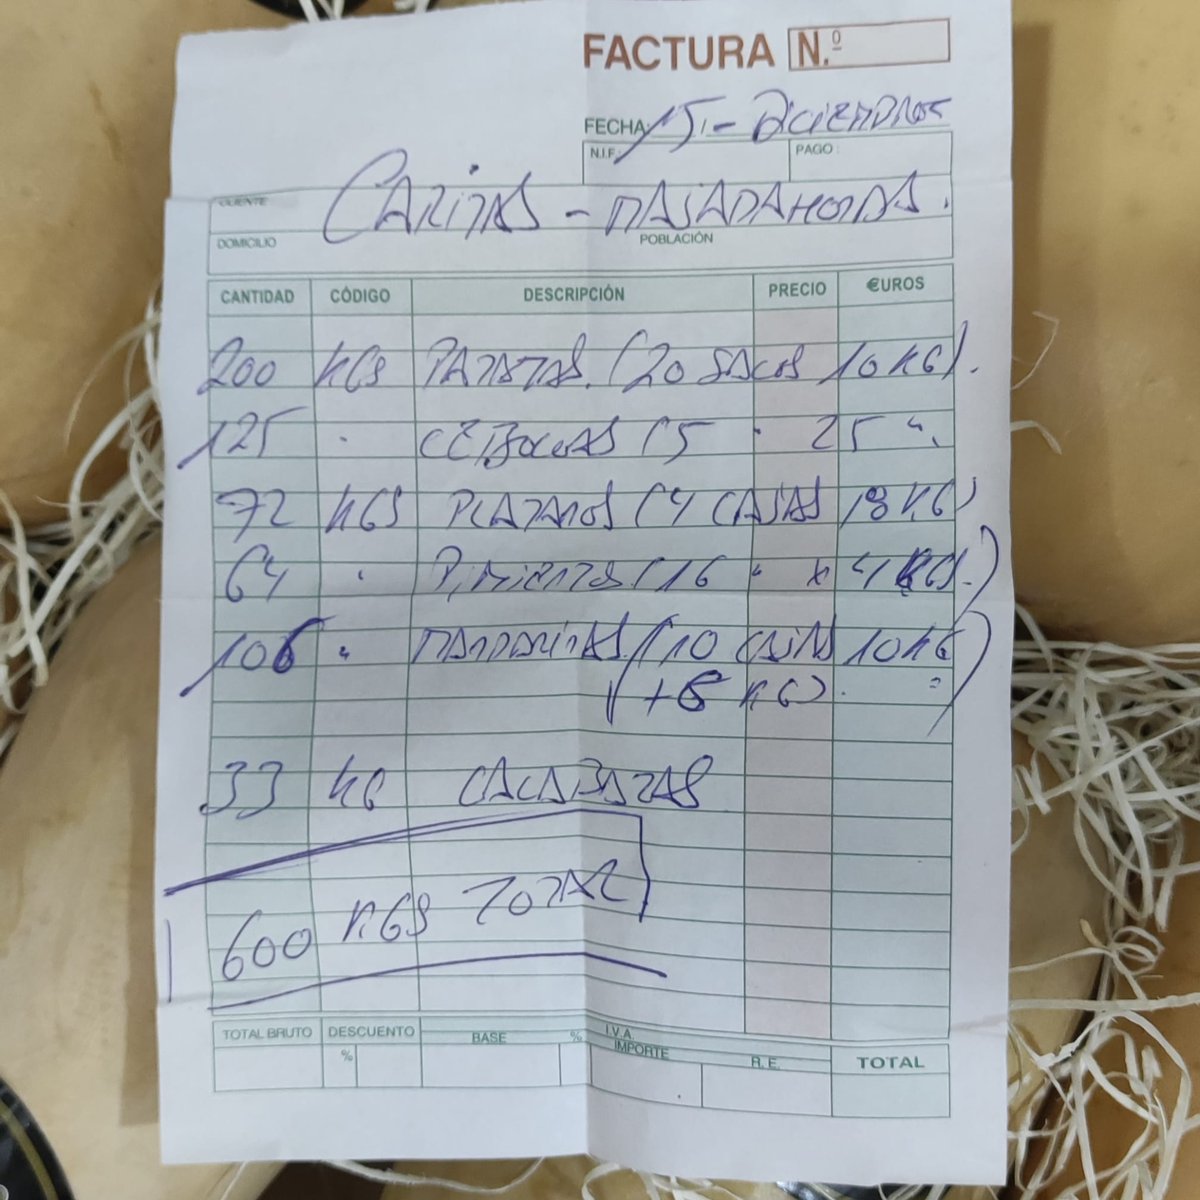 FACTURA N.º
FECHA: 15 - DICIEMBRE
N.I.F.: PAGO:
CLIENTE CARITAS - MAJADAHONDA.
DOMICILIO POBLACIÓN
CANTIDAD CÓDIGO DESCRIPCIÓN PRECIO €UROS
200 KGS PATATAS. (20 SACOS 10 KG).
125 " CEBOLLAS (5 " 25 ".
72 KGS PLATANOS (4 CAJAS 18 KG)
64 " PIMIENTOS (16 " x 4 KGS.)
106 " MANDARINAS (10 CAJAS 10 KG
(+6 KG). "
33 KG CALABAZAS
600 KGS TOTAL
TOTAL BRUTO DESCUENTO BASE % I.V.A. IMPORTE R.E. TOTAL
%